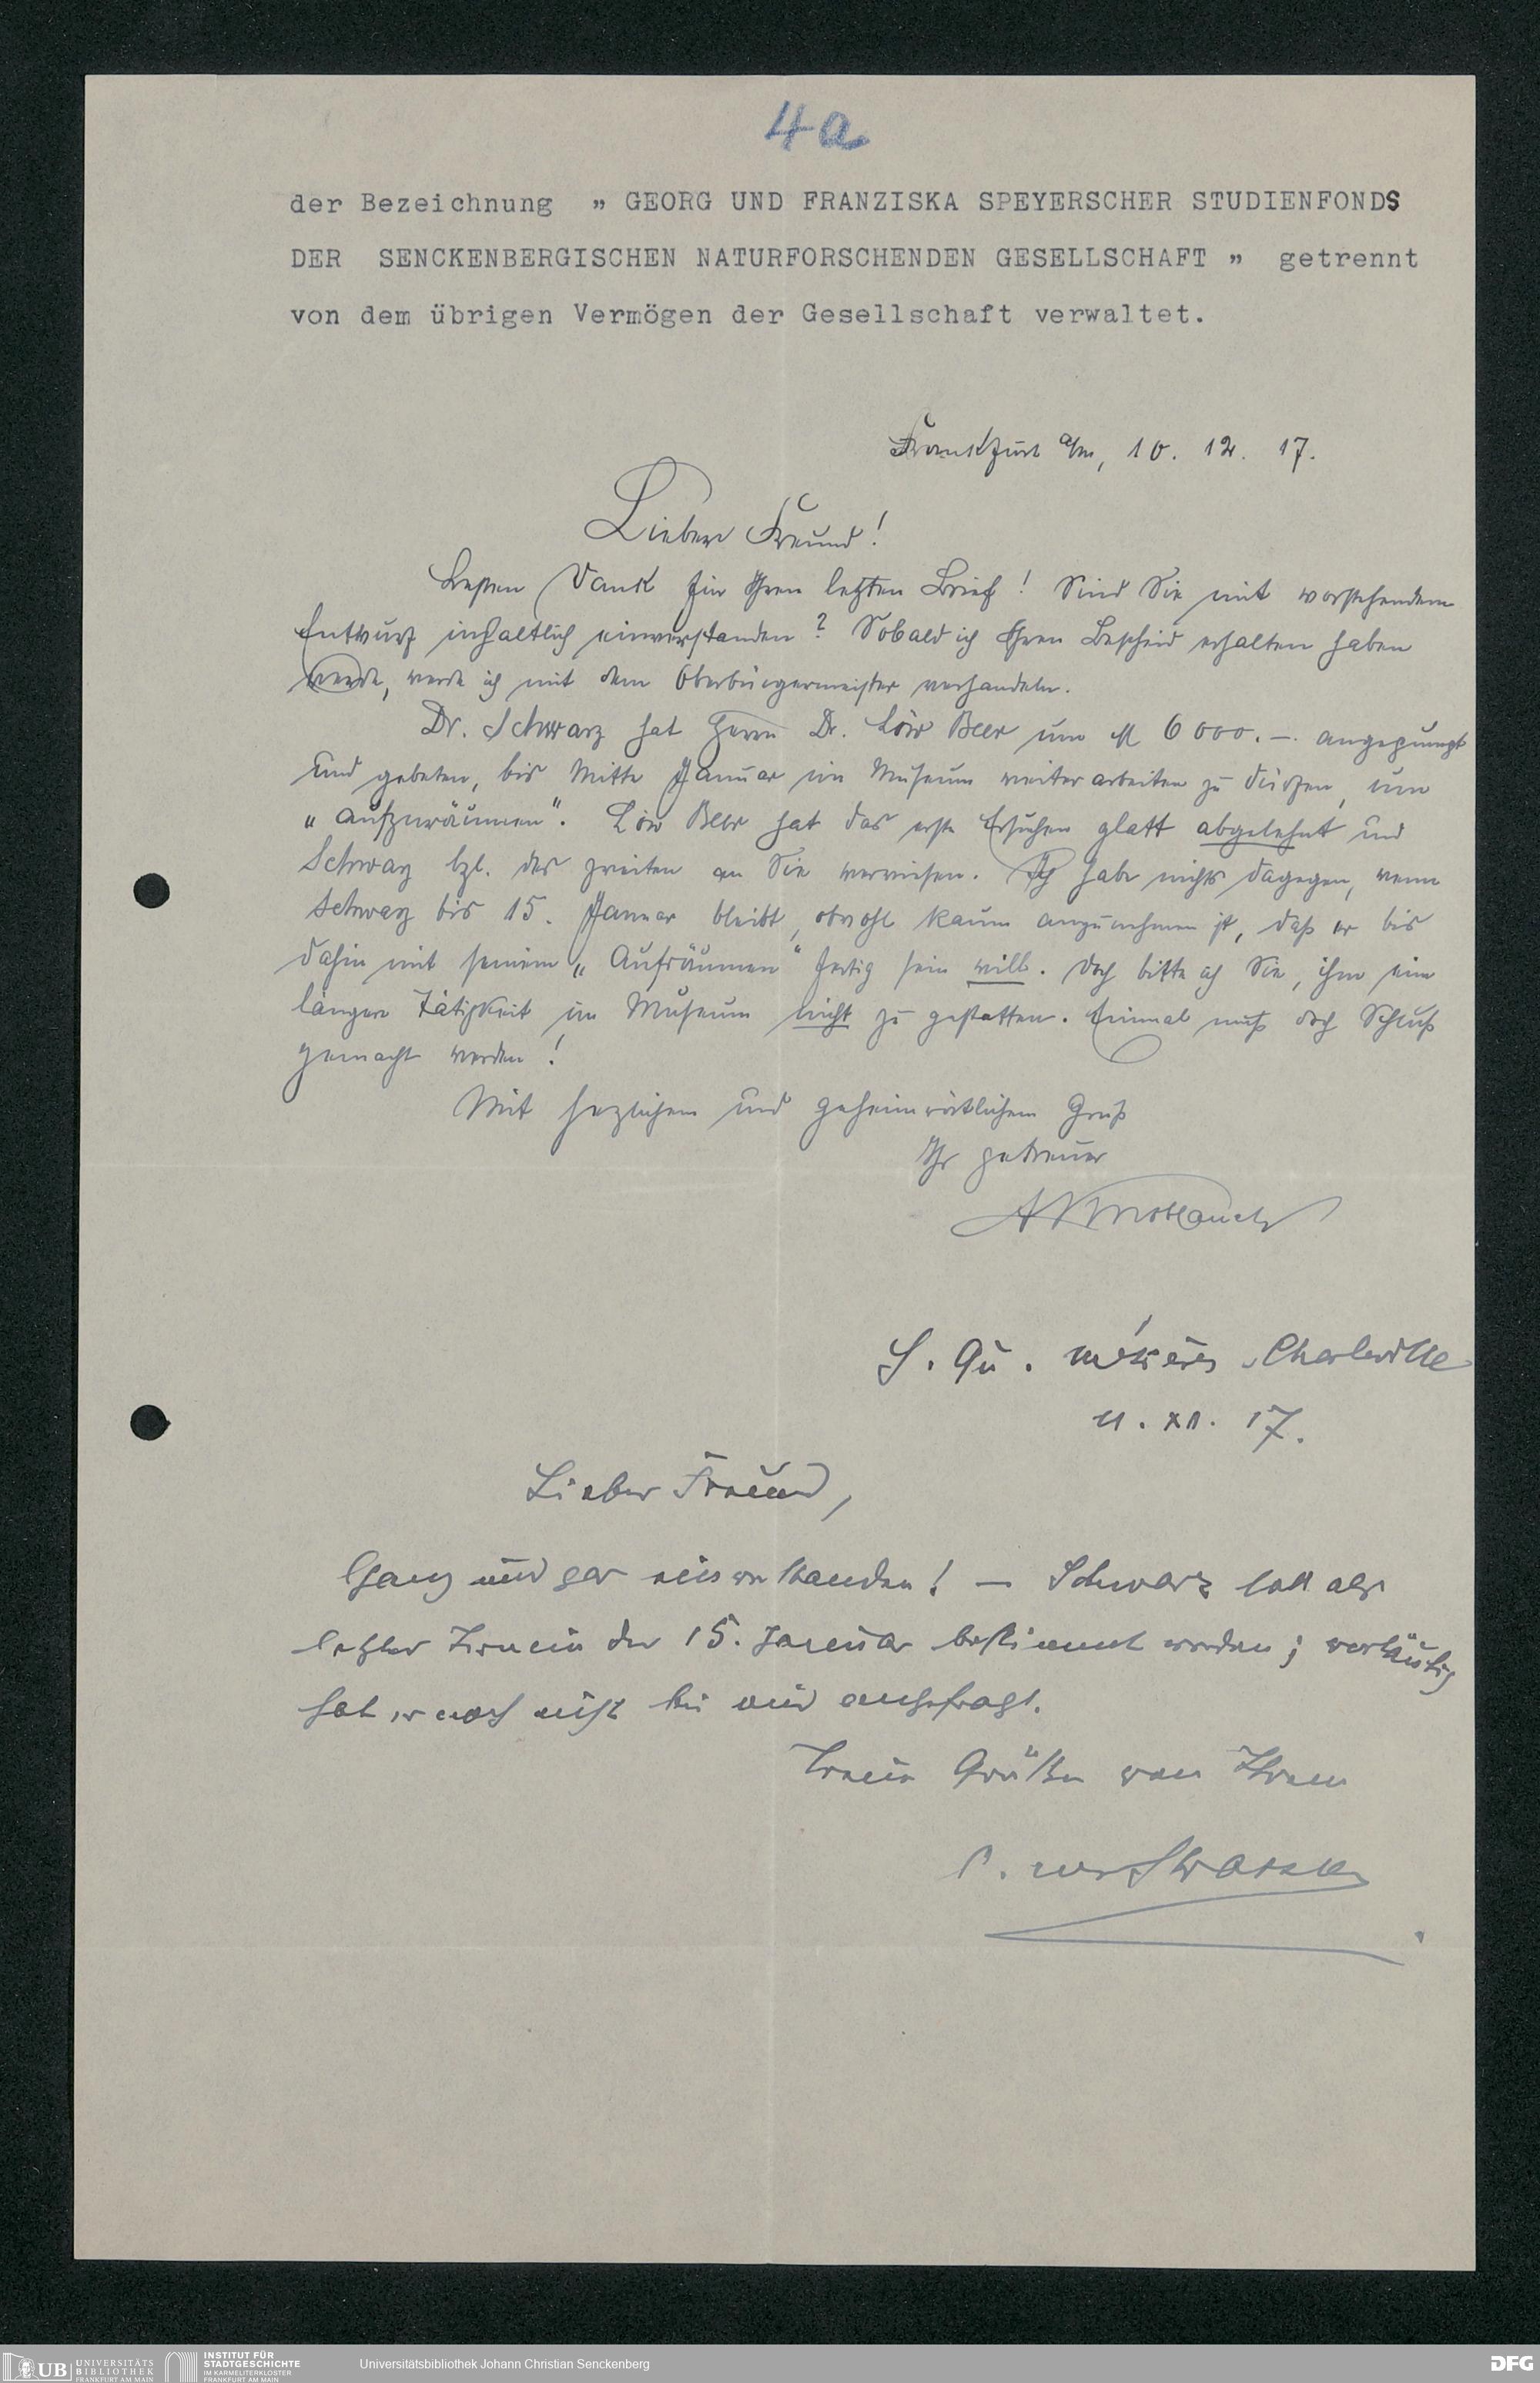 4a
der Bezeichnung „ GEORG UND FRANZISKA SPEYERSCHER STUDIENFONDS
DER SENCKENBERGISCHEN NATURFORSCHENDEN GESELLSCHAFT „ getrennt
von dem übrigen Vermögen der Gesellschaft verwaltet.
Frankfurt a/m, 10. 12. 17.
Lieber Freund!
Besten Dank für Ihren letzten Brief! Sind Sie mit vorstehendem
Entwurf inhaltlich einverstanden? Sobald ich Ihren Bescheid erhalten haben
werde, werde ich mit dem Oberbürgermeister verhandeln.
Dr. Schwarz hat Herrn Dr. Löw Beer um M 6000.–. angepumpt
und gebeten, bis Mitte Januar im Museum weiter arbeiten zu dürfen, um
„aufzuräumen“. Löw Beer hat das erste Ersuchen glatt abgelehnt und
Schwarz bzl. des zweiten an Sie verwiesen. Ich habe nichts dagegen, wenn
Schwarz bis 15. Januar bleibt, obwohl kaum anzunehmen ist, daß er bis
dahin mit seinem „Aufräumen“ fertig sein will. Doch bitte ich Sie, ihm eine
längere Tätigkeit im Museum nicht zu gestatten. Einmal muß doch Schluß
gemacht werden!
Mit herzlichem und geheimrätlichem Gruß
Ihr getreuer
A Knoblauch
G. Qu. Mézières Charleville
11. XII. 17.
Lieber Freund,
Ganz und gar einverstanden! – Schwarz soll als
letzter Termin der 15. Januar bestimmt werden; vorläufig
hat er noch nicht bei mir angefragt.
Treue Grüße von Ihrem
O. zur Strassen
UB UNIVERSITÄTS
BIBLIOTHEK
FRANKFURT AM MAIN
INSTITUT FÜR
STADTGESCHICHTE
IM KARMELITERKLOSTER
FRANKFURT AM MAIN
Universitätsbibliothek Johann Christian Senckenberg
DFG